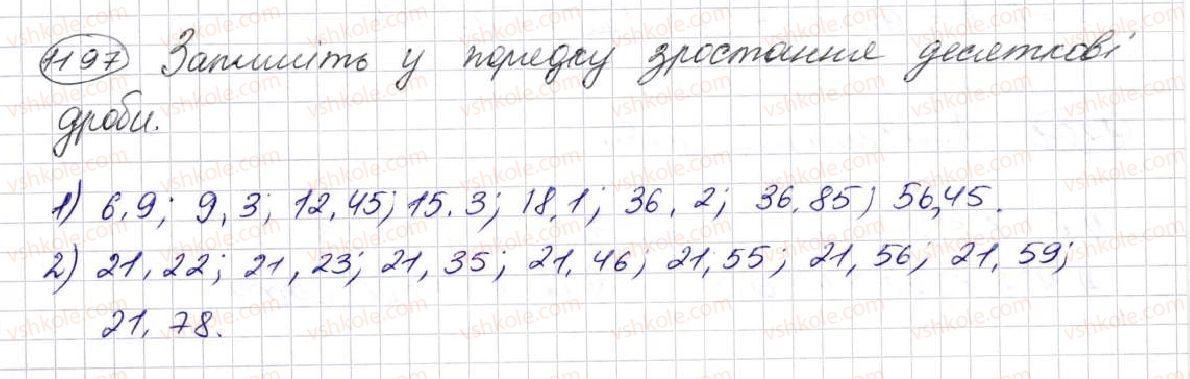 1197 Запишіть у порядку зростання десяткові
дроби.
1) 6,9; 9,3; 12,45; 15,3; 18,1; 36,2; 36,85; 56,45.
2) 21,22; 21,23; 21,35; 21,46; 21,55; 21,56; 21,59;
21,78.